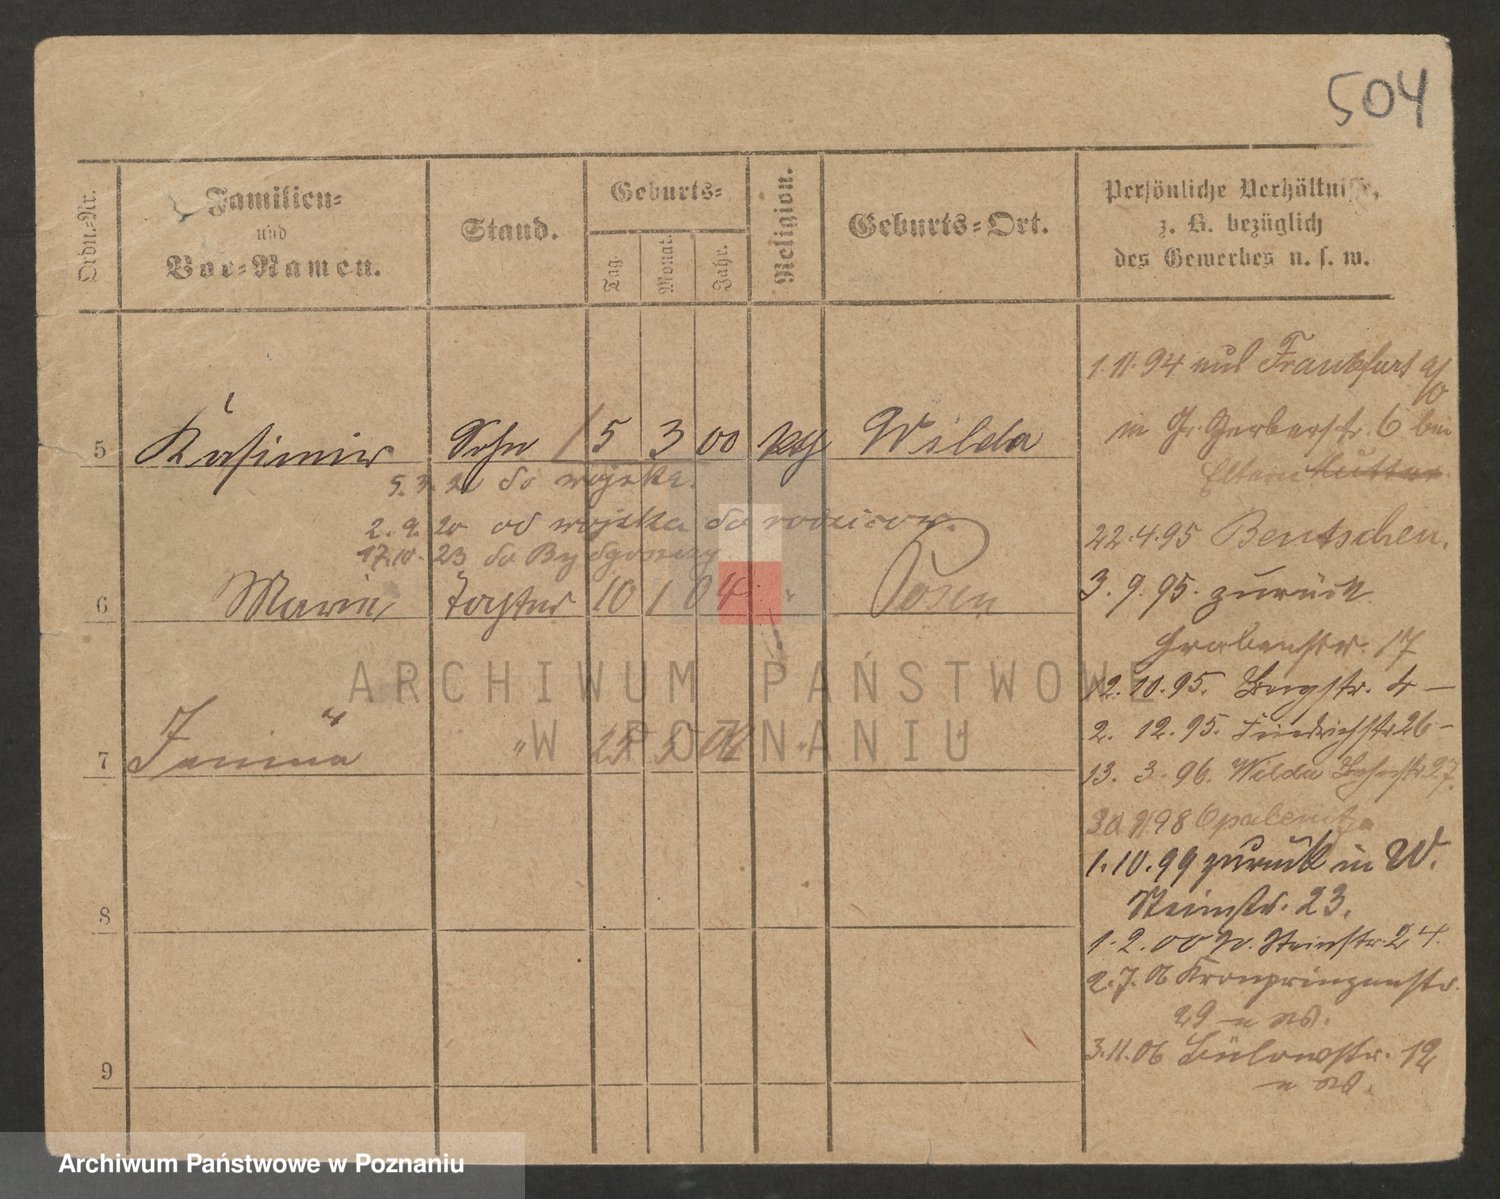 504
Ordn.-Nr.
Familien-
und
Vor-Namen.
Stand.
Geburts-
Tag.
Monat.
Jahr.
Religion.
Geburts-Ort.
Persönliche Verhältnisse,
z. B. bezüglich
des Gewerbes u. s. w.
5 Kasimir Sohn 5 3 00 Wilda
do wojska.
2. 9. 20 od wojska do rodziców.
17.10. 23 do Bydgoszczy
6 Marie Tochter 10 1 04 Posen
7 Janina " 3
8
9
1. 11. 94 aus Frankfurt a/O
in Gr. Gerberstr. 6 bei
Eltern Mutter
22.4.95 Bentschen.
3. 9. 95. zurück
Grabenstr. 17
12. 10. 95. 4 –
2. 12. 95. Friedrichstr 26 –
13. 3. 96. Wilda 27.
98 Opalenitza
1. 10. 99 zurück in W.
Steinstr. 23.
1. 2. 00 Steinstr. 24.
2. 7. 06 Kronprinzenstr.
29
3. 11. 06 Bülowstr. 12
ARCHIWUM PAŃSTWOWE
W POZNANIU
Archiwum Państwowe w Poznaniu